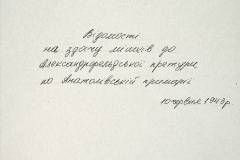 Відомості
на здачу міліції до
Александрфельдської претури
по Анатоліївській примарії
10 червня 1943 р.